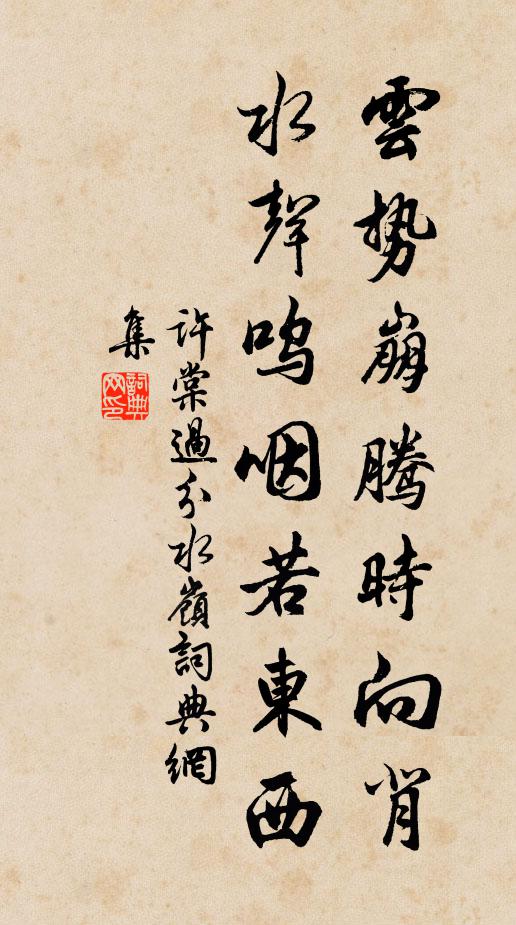 雲勢崩騰時向背
水聲嗚咽若東西
許棠過分水嶺詞典網
集
詞典
网印